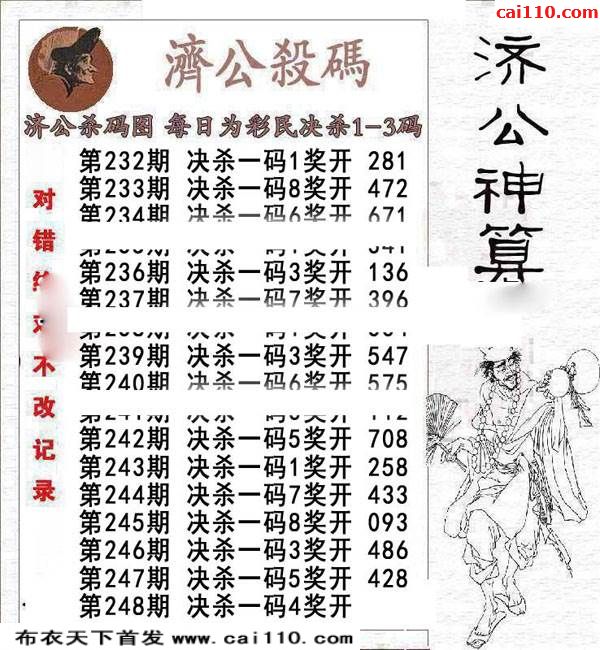 cai110.com
濟公殺碼
济公神算
济公杀码图 每日为彩民决杀1-3码
对错绝对不改记录
第232期 决杀一码1奖开 281
第233期 决杀一码8奖开 472
第234期 决杀一码6奖开 671
决杀一码 奖开 341
第236期 决杀一码3奖开 136
第237期 决杀一码7奖开 396
决杀一码 奖开
第239期 决杀一码3奖开 547
第240期 决杀一码6奖开 575
第241期 决杀一码 奖开 112
第242期 决杀一码5奖开 708
第243期 决杀一码1奖开 258
第244期 决杀一码7奖开 433
第245期 决杀一码8奖开 093
第246期 决杀一码3奖开 486
第247期 决杀一码5奖开 428
第248期 决杀一码4奖开
布衣天下首发 www.cai110.com